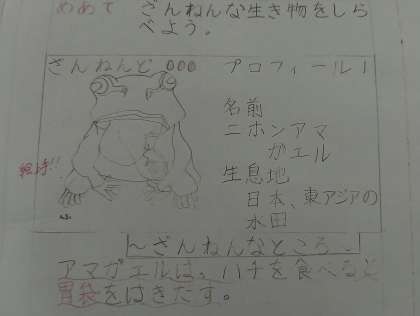 めあて ざんねんな生き物をしら
べよう。
ざんねんど 000 プロフィール1
名前
ニホンアマ
ガエル
生息地
日本、東アジアの
水田
～ざんねんなところ～
アマガエルは、ハチを食べると
胃袋をはきだす。